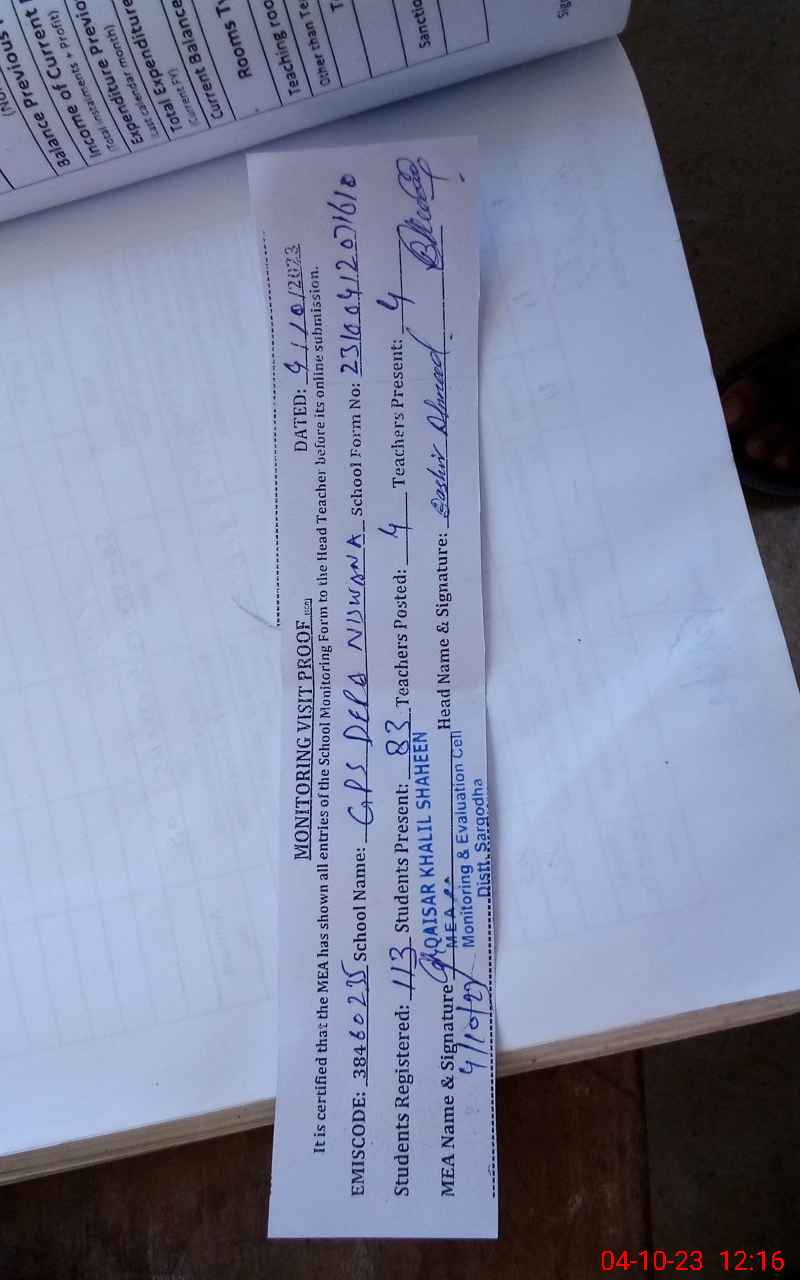 (Nor
Balance Previous
Balance of Current F
Income of Current
(Total instalments + Profit)
Expenditure Previo
(Last calendar month)
Total Expenditure
(Current FY)
Current Balance
Rooms Ty
Teaching roo
Other than Te
Sanctio
Sig
MONITORING VISIT PROOF
DATED: 4/10/2023
It is certified that the MEA has shown all entries of the School Monitoring Form to the Head Teacher before its online submission.
EMISCODE: 38460235 School Name: GPS DERA NISWANA School Form No: 23100412071610
Students Registered: 113 Students Present: 83 Teachers Posted: 4 Teachers Present: 4
MEA Name & Signature Head Name & Signature: Bashir Ahmad
QAISAR KHALIL SHAHEEN
MEA
Monitoring & Evaluation Cell
Distt. Sargodha
4/10/23
04-10-23 12:16